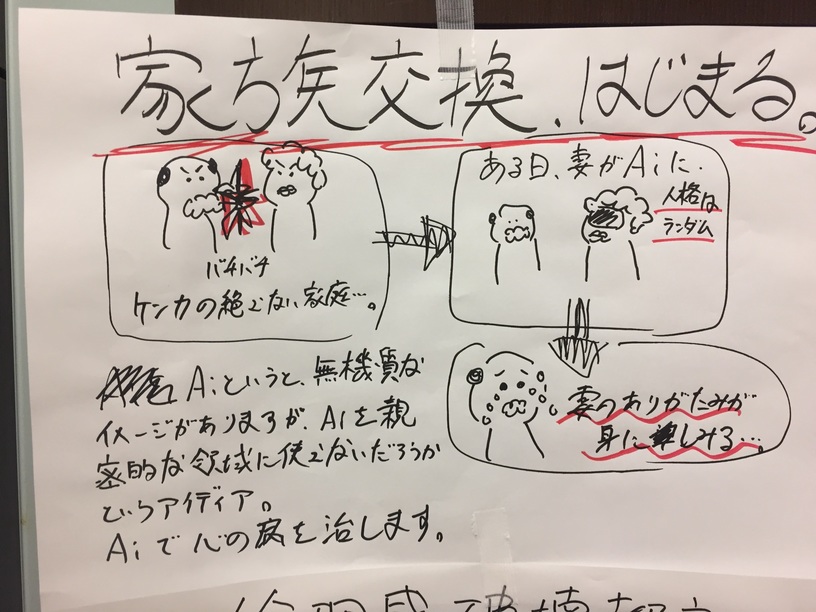 家族交換、はじまる。
バチバチ
ケンカの絶えない家庭…。
ある日、妻がAiに.
人格は
ランダム
妻のありがたみが
身にしみる…。
Aiというと、無機質な
イメージがありますが、AIを親
密的な領域に使えないだろうか
というアイディア。
Aiで心の病を治します。